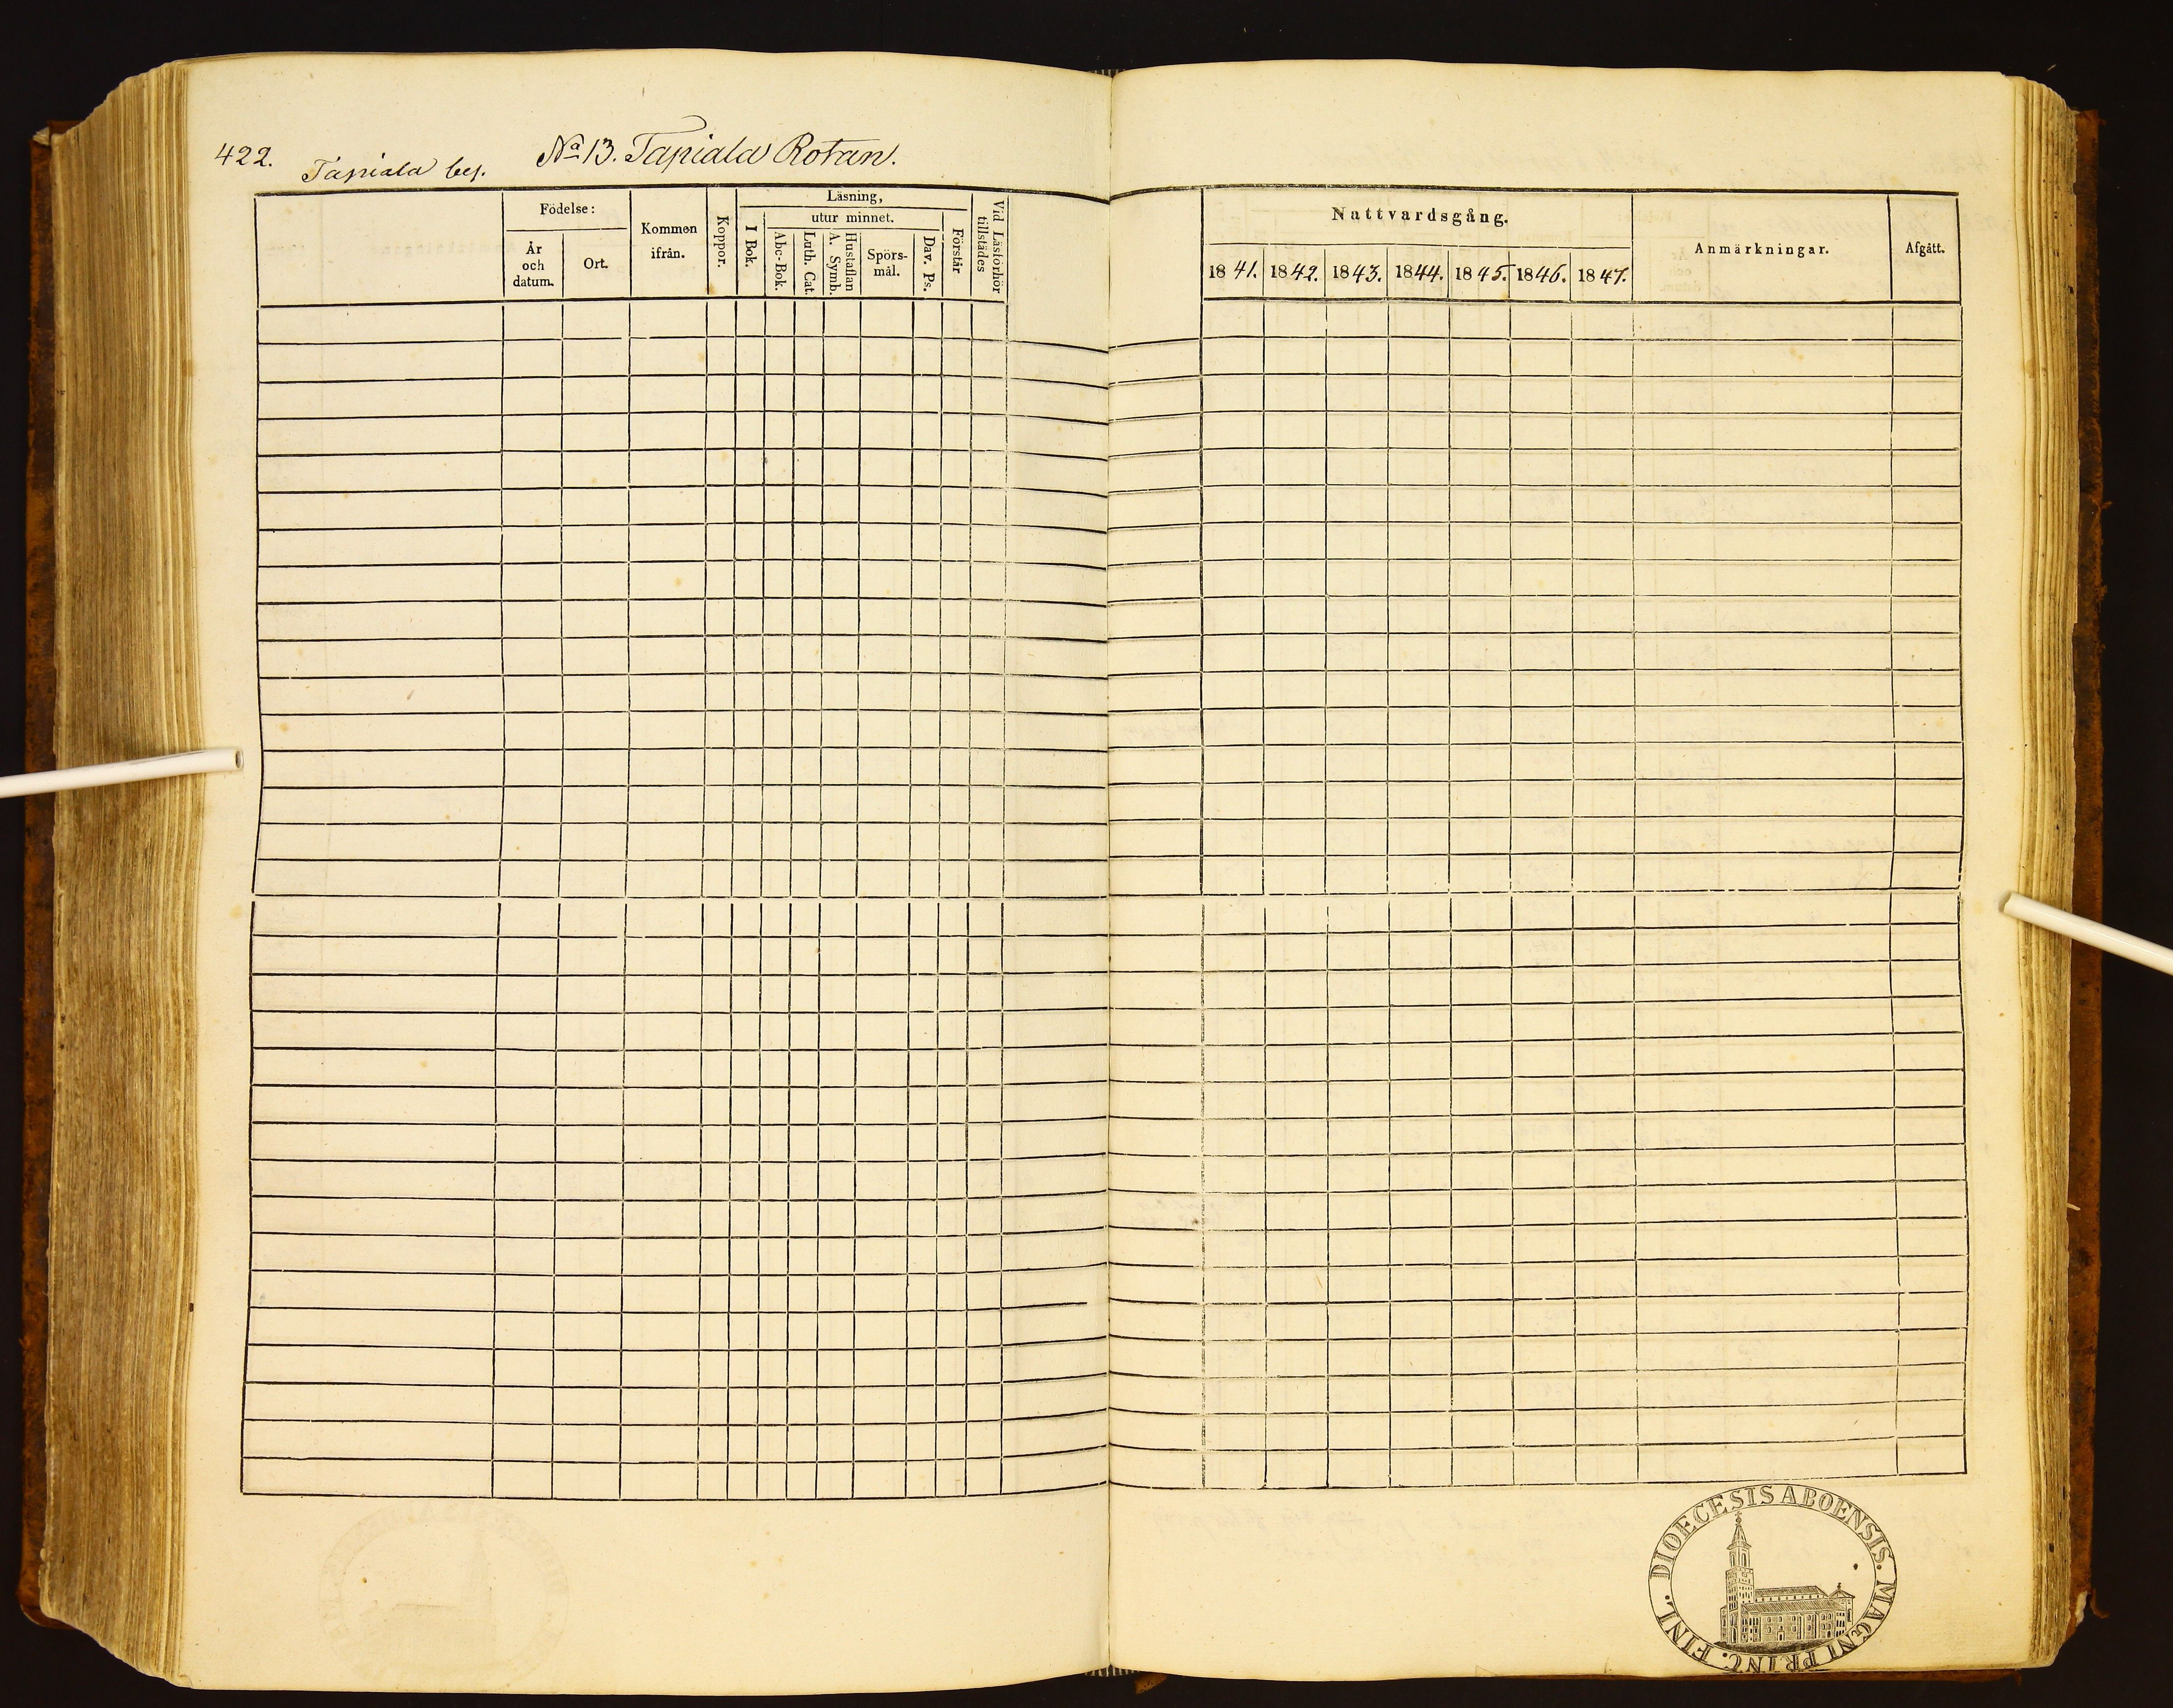 422.
Tapiala
No 13. Tapiala Rotan.
Födelse:
År
och
datum.
Ort.
Kommen
ifrån.
Koppor.
Läsning,
I Bok.
utur minnet.
Abc-Bok.
Luth. Cat.
Hustaflan
A. Symb.
Spörs-
mål.
Dav. Ps.
Förstår
Vid Läsförhör
tillstädes
Nattvardsgång.
1841. 1842. 1843. 1844. 1845. 1846. 1847.
Anmärkningar.
Afgått.
DIOECESIS ABOENSIS. MAGNI PRINC. FINL.